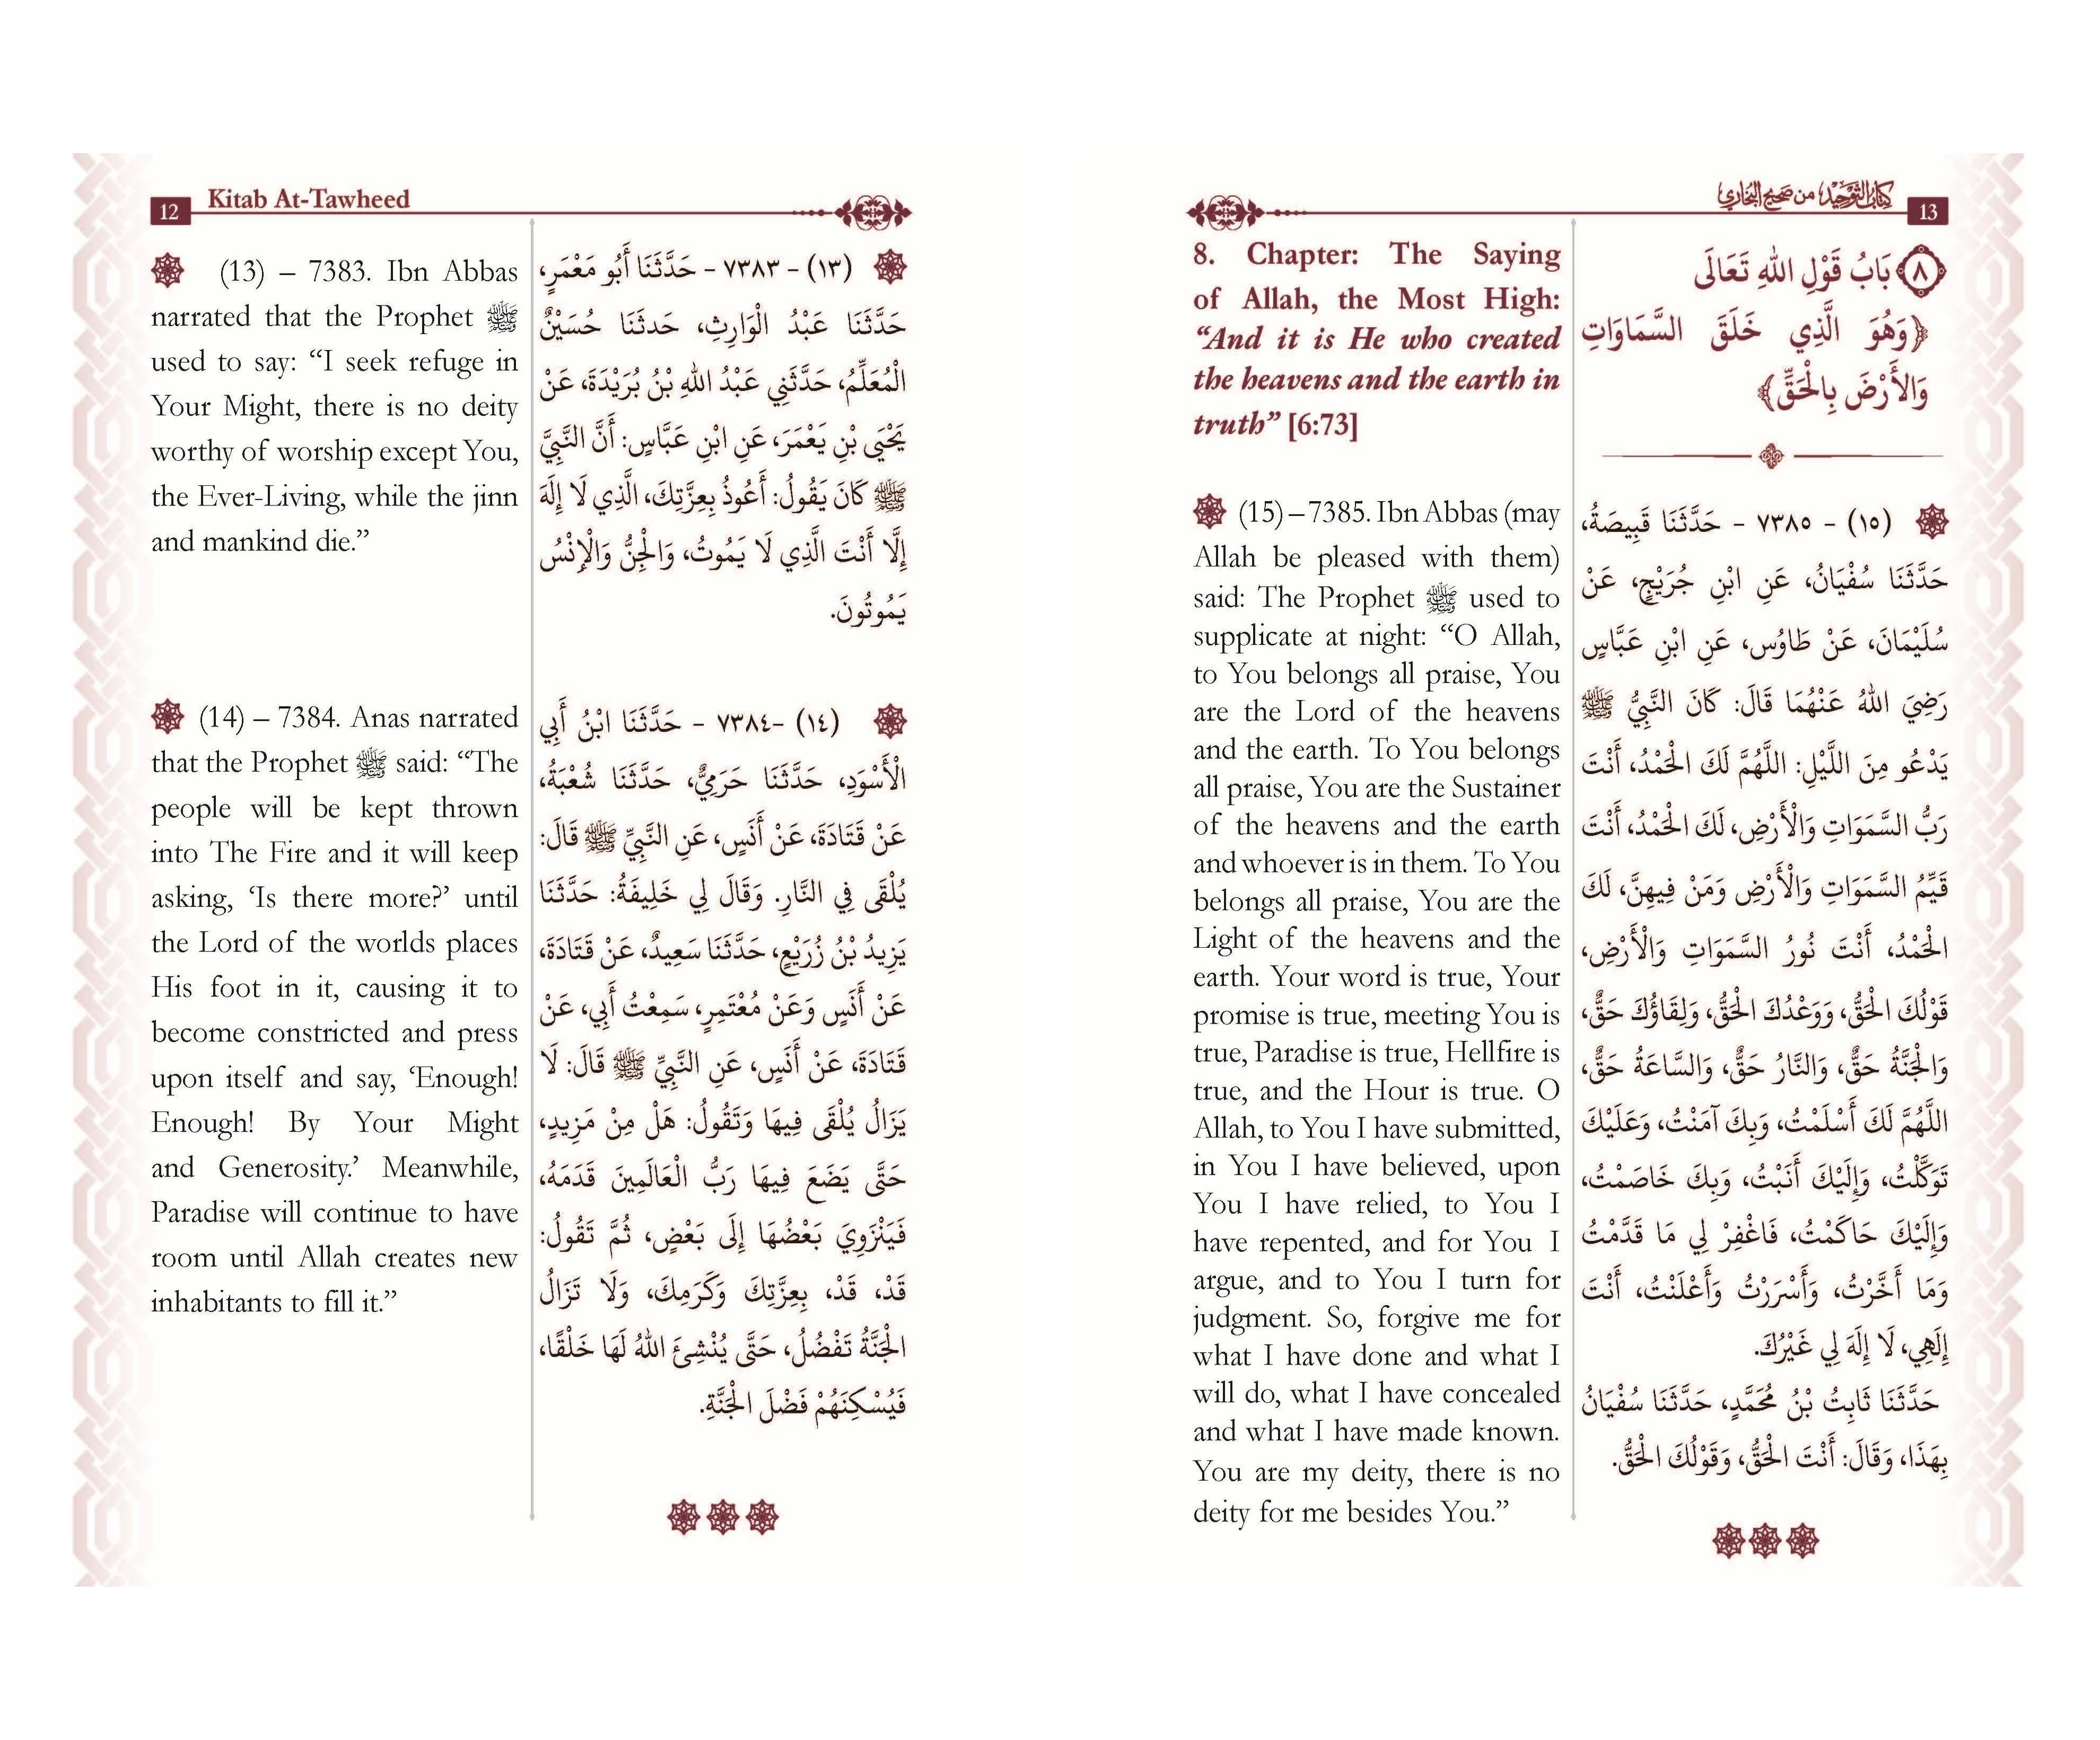 12
Kitab At-Tawheed
(13) – 7383. Ibn Abbas
narrated that the Prophet ﷺ
used to say: “I seek refuge in
Your Might, there is no deity
worthy of worship except You,
the Ever-Living, while the jinn
and mankind die.”
(14) – 7384. Anas narrated
that the Prophet ﷺ said: “The
people will be kept thrown
into The Fire and it will keep
asking, ‘Is there more?’ until
the Lord of the worlds places
His foot in it, causing it to
become constricted and press
upon itself and say, ‘Enough!
Enough! By Your Might
and Generosity.’ Meanwhile,
Paradise will continue to have
room until Allah creates new
inhabitants to fill it.”
(١٣) - ٧٣٨٣ - حَدَّثَنَا أَبُو مَعْمَرٍ،
حَدَّثَنَا عَبْدُ الْوَارِثِ، حَدثَنَا حُسَيْنٌ
الْمُعَلِّمُ، حَدَّثَنِي عَبْدُ اللهِ بْنُ بُرَيْدَةَ، عَنْ
يَحْيَى بْنِ يَعْمَرَ، عَنِ ابْنِ عَبَّاسٍ: أَنَّ النَّبِيَّ
ﷺ كَانَ يَقُولُ: أَعُوذُ بِعِزَّتِكَ، الَّذِي لَا إِلَهَ
إِلَّا أَنْتَ الَّذِي لَا يَمُوتُ، وَالْجِنُّ وَالْإِنْسُ
يَمُوتُونَ.
(١٤) -٧٣٨٤ - حَدَّثَنَا ابْنُ أَبِي
الْأَسْوَدِ، حَدَّثَنَا حَرَمِيٌّ، حَدَّثَنَا شُعْبَةُ،
عَنْ قَتَادَةَ، عَنْ أَنَسٍ، عَنِ النَّبِيِّ ﷺ قَالَ:
يُلْقَى فِي النَّارِ. وَقَالَ لِي خَلِيفَةُ: حَدَّثَنَا
يَزِيدُ بْنُ زُرَيْعٍ، حَدَّثَنَا سَعِيدٌ، عَنْ قَتَادَةَ،
عَنْ أَنَسٍ وَعَنْ مُعْتَمِرٍ، سَمِعْتُ أَبِي، عَنْ
قَتَادَةَ، عَنْ أَنَسٍ، عَنِ النَّبِيِّ ﷺ قَالَ: لَا
يَزَالُ يُلْقَى فِيهَا وَتَقُولُ: هَلْ مِنْ مَزِيدٍ،
حَتَّى يَضَعَ فِيهَا رَبُّ الْعَالَمِينَ قَدَمَهُ،
فَيَنْزَوِيَ بَعْضُهَا إِلَى بَعْضٍ، ثُمَّ تَقُولُ:
قَدْ، قَدْ، بِعِزَّتِكَ وَكَرَمِكَ، وَلَا تَزَالُ
الْجَنَّةُ تَفْضُلُ، حَتَّى يُنْشِئَ اللهُ لَهَا خَلْقًا،
فَيُسْكِنَهُمْ فَضْلَ الْجَنَّةِ.
كتاب التوحيد من صحيح البخاري
13
8. Chapter: The Saying
of Allah, the Most High:
“And it is He who created
the heavens and the earth in
truth” [6:73]
(15) – 7385. Ibn Abbas (may
Allah be pleased with them)
said: The Prophet ﷺ used to
supplicate at night: “O Allah,
to You belongs all praise, You
are the Lord of the heavens
and the earth. To You belongs
all praise, You are the Sustainer
of the heavens and the earth
and whoever is in them. To You
belongs all praise, You are the
Light of the heavens and the
earth. Your word is true, Your
promise is true, meeting You is
true, Paradise is true, Hellfire is
true, and the Hour is true. O
Allah, to You I have submitted,
in You I have believed, upon
You I have relied, to You I
have repented, and for You I
argue, and to You I turn for
judgment. So, forgive me for
what I have done and what I
will do, what I have concealed
and what I have made known.
You are my deity, there is no
deity for me besides You.”
٨ بَابُ قَوْلِ اللهِ تَعَالَى
﴿وَهُوَ الَّذِي خَلَقَ السَّمَاوَاتِ
وَالأَرْضَ بِالْحَقِّ﴾
(١٥) - ٧٣٨٥ - حَدَّثَنَا قَبِيصَةُ،
حَدَّثَنَا سُفْيَانُ، عَنِ ابْنِ جُرَيْجٍ، عَنْ
سُلَيْمَانَ، عَنْ طَاوُس، عَنِ ابْنِ عَبَّاسٍ
رَضِيَ اللهُ عَنْهُمَا قَالَ: كَانَ النَّبِيُّ ﷺ
يَدْعُو مِنَ اللَّيْلِ: اللَّهُمَّ لَكَ الْحَمْدُ، أَنْتَ
رَبُّ السَّمَوَاتِ وَالْأَرْضِ، لَكَ الْحَمْدُ، أَنْتَ
قَيِّمُ السَّمَوَاتِ وَالْأَرْضِ وَمَنْ فِيهِنَّ، لَكَ
الْحَمْدُ، أَنْتَ نُورُ السَّمَوَاتِ وَالْأَرْضِ،
قَوْلُكَ الْحَقُّ، وَوَعْدُكَ الْحَقُّ، وَلِقَاؤُكَ حَقٌّ،
وَالْجَنَّةُ حَقٌّ، وَالنَّارُ حَقٌّ، وَالسَّاعَةُ حَقٌّ،
اللَّهُمَّ لَكَ أَسْلَمْتُ، وَبِكَ آمَنْتُ، وَعَلَيْكَ
تَوَكَّلْتُ، وَإِلَيْكَ أَنَبْتُ، وَبِكَ خَاصَمْتُ،
وَإِلَيْكَ حَاكَمْتُ، فَاغْفِرْ لِي مَا قَدَّمْتُ
وَمَا أَخَّرْتُ، وَأَسْرَرْتُ وَأَعْلَنْتُ، أَنْتَ
إِلَهِي، لَا إِلَهَ لِي غَيْرُكَ.
حَدَّثَنَا ثَابِتُ بْنُ مُحَمَّدٍ، حَدَّثَنَا سُفْيَانُ
بِهَذَا، وَقَالَ: أَنْتَ الْحَقُّ، وَقَوْلُكَ الْحَقُّ.